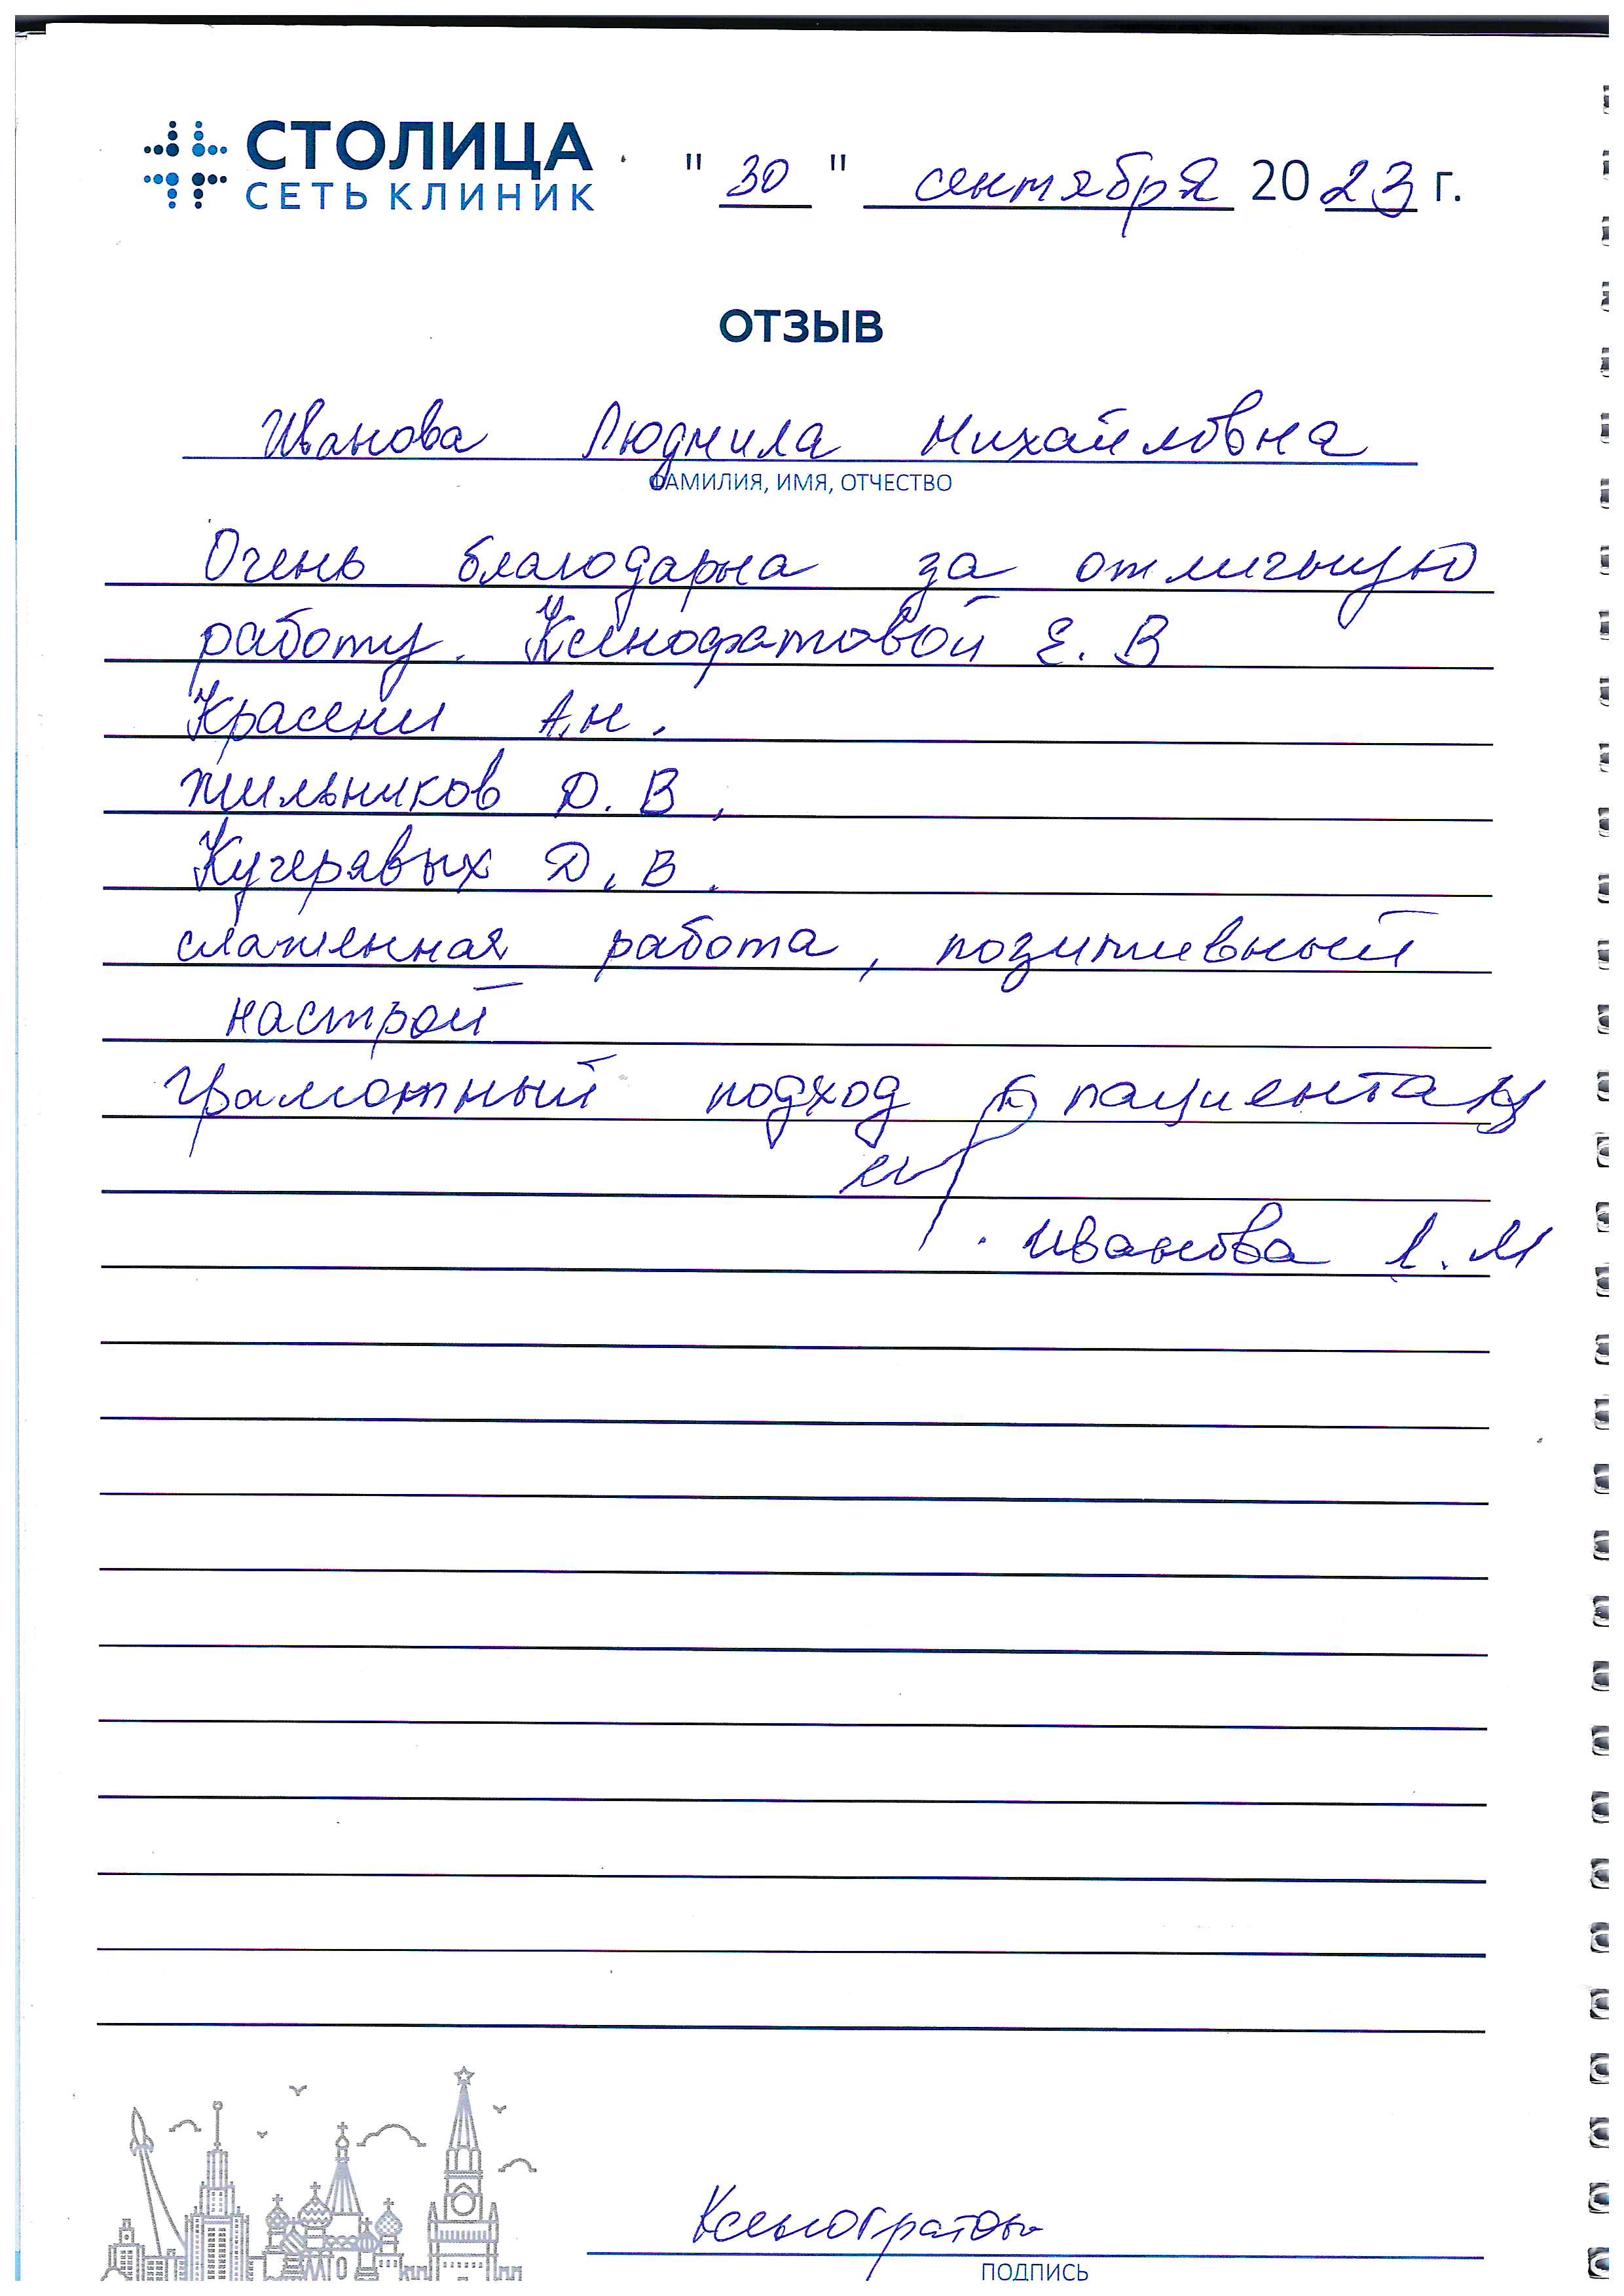 СТОЛИЦА
СЕТЬ КЛИНИК
" 30 " сентября 2023 г.
ОТЗЫВ
Иванова Людмила Михайловна
ФАМИЛИЯ, ИМЯ, ОТЧЕСТВО
Очень благодарна за отличную
работу. Ксенофатовой Е. В
Красени А.Н.
Жильников Д. В,
Кучерявых Д. В.
слаженная работа, позитивный
настрой
грамотный подход к пациентам
Иванова Л. М
ПОДПИСЬ